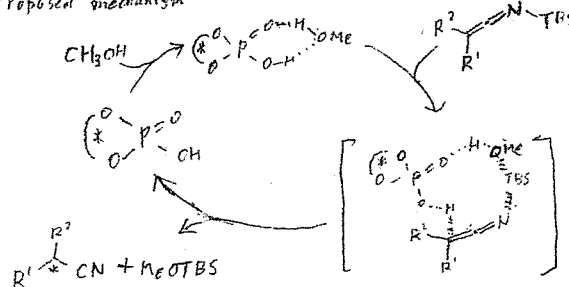 Proposed mechanism
CH3OH
(* O O P O H OMe O H
R2 R1 N TBS
(* O O P O OH
[ (* O O P O H OMe TBS O H R2 R1 N ]
R2
R1 * CN + MeOTBS